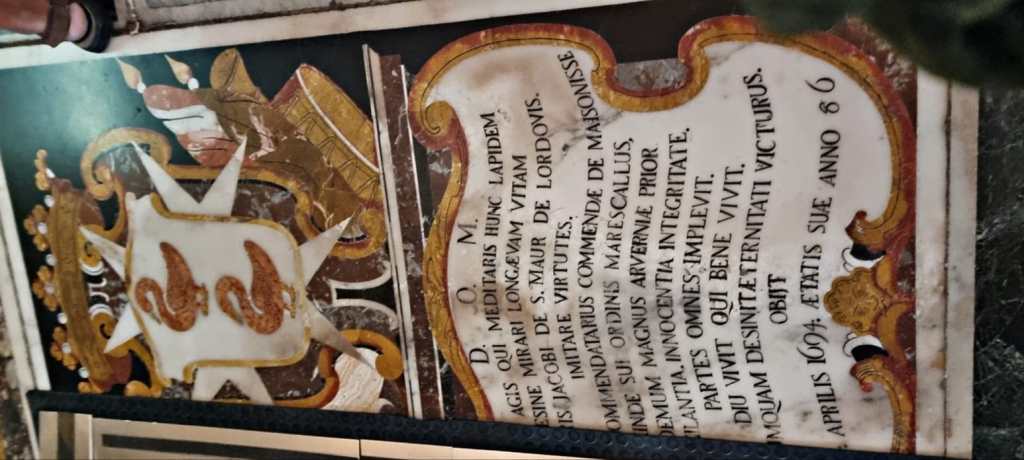 D. O. M.
AGIS QUI MEDITARIS HUNC LAPIDEM
ESINE MIRARI LONGÆVAM VITAM
IS JACOBI DE S. MAUR DE LORDOVIS.
IMITARE VIRTUTES.
OMMENDATARIUS COMMENDÆ DE MAISONISSE
INDE SUI ORDINIS MARESCALLUS,
DEMUM MAGNUS ARVERNIÆ PRIOR
LANTIA. INNOCENTIA INTEGRITATE.
PARTES OMNES IMPLEVIT.
DIU VIVIT QUI BENE VIVIT.
MQUAM DESINIT ÆTERNITATI VICTURUS.
OBIIT
APRILIS 1694. ÆTATIS SUÆ ANNO 86